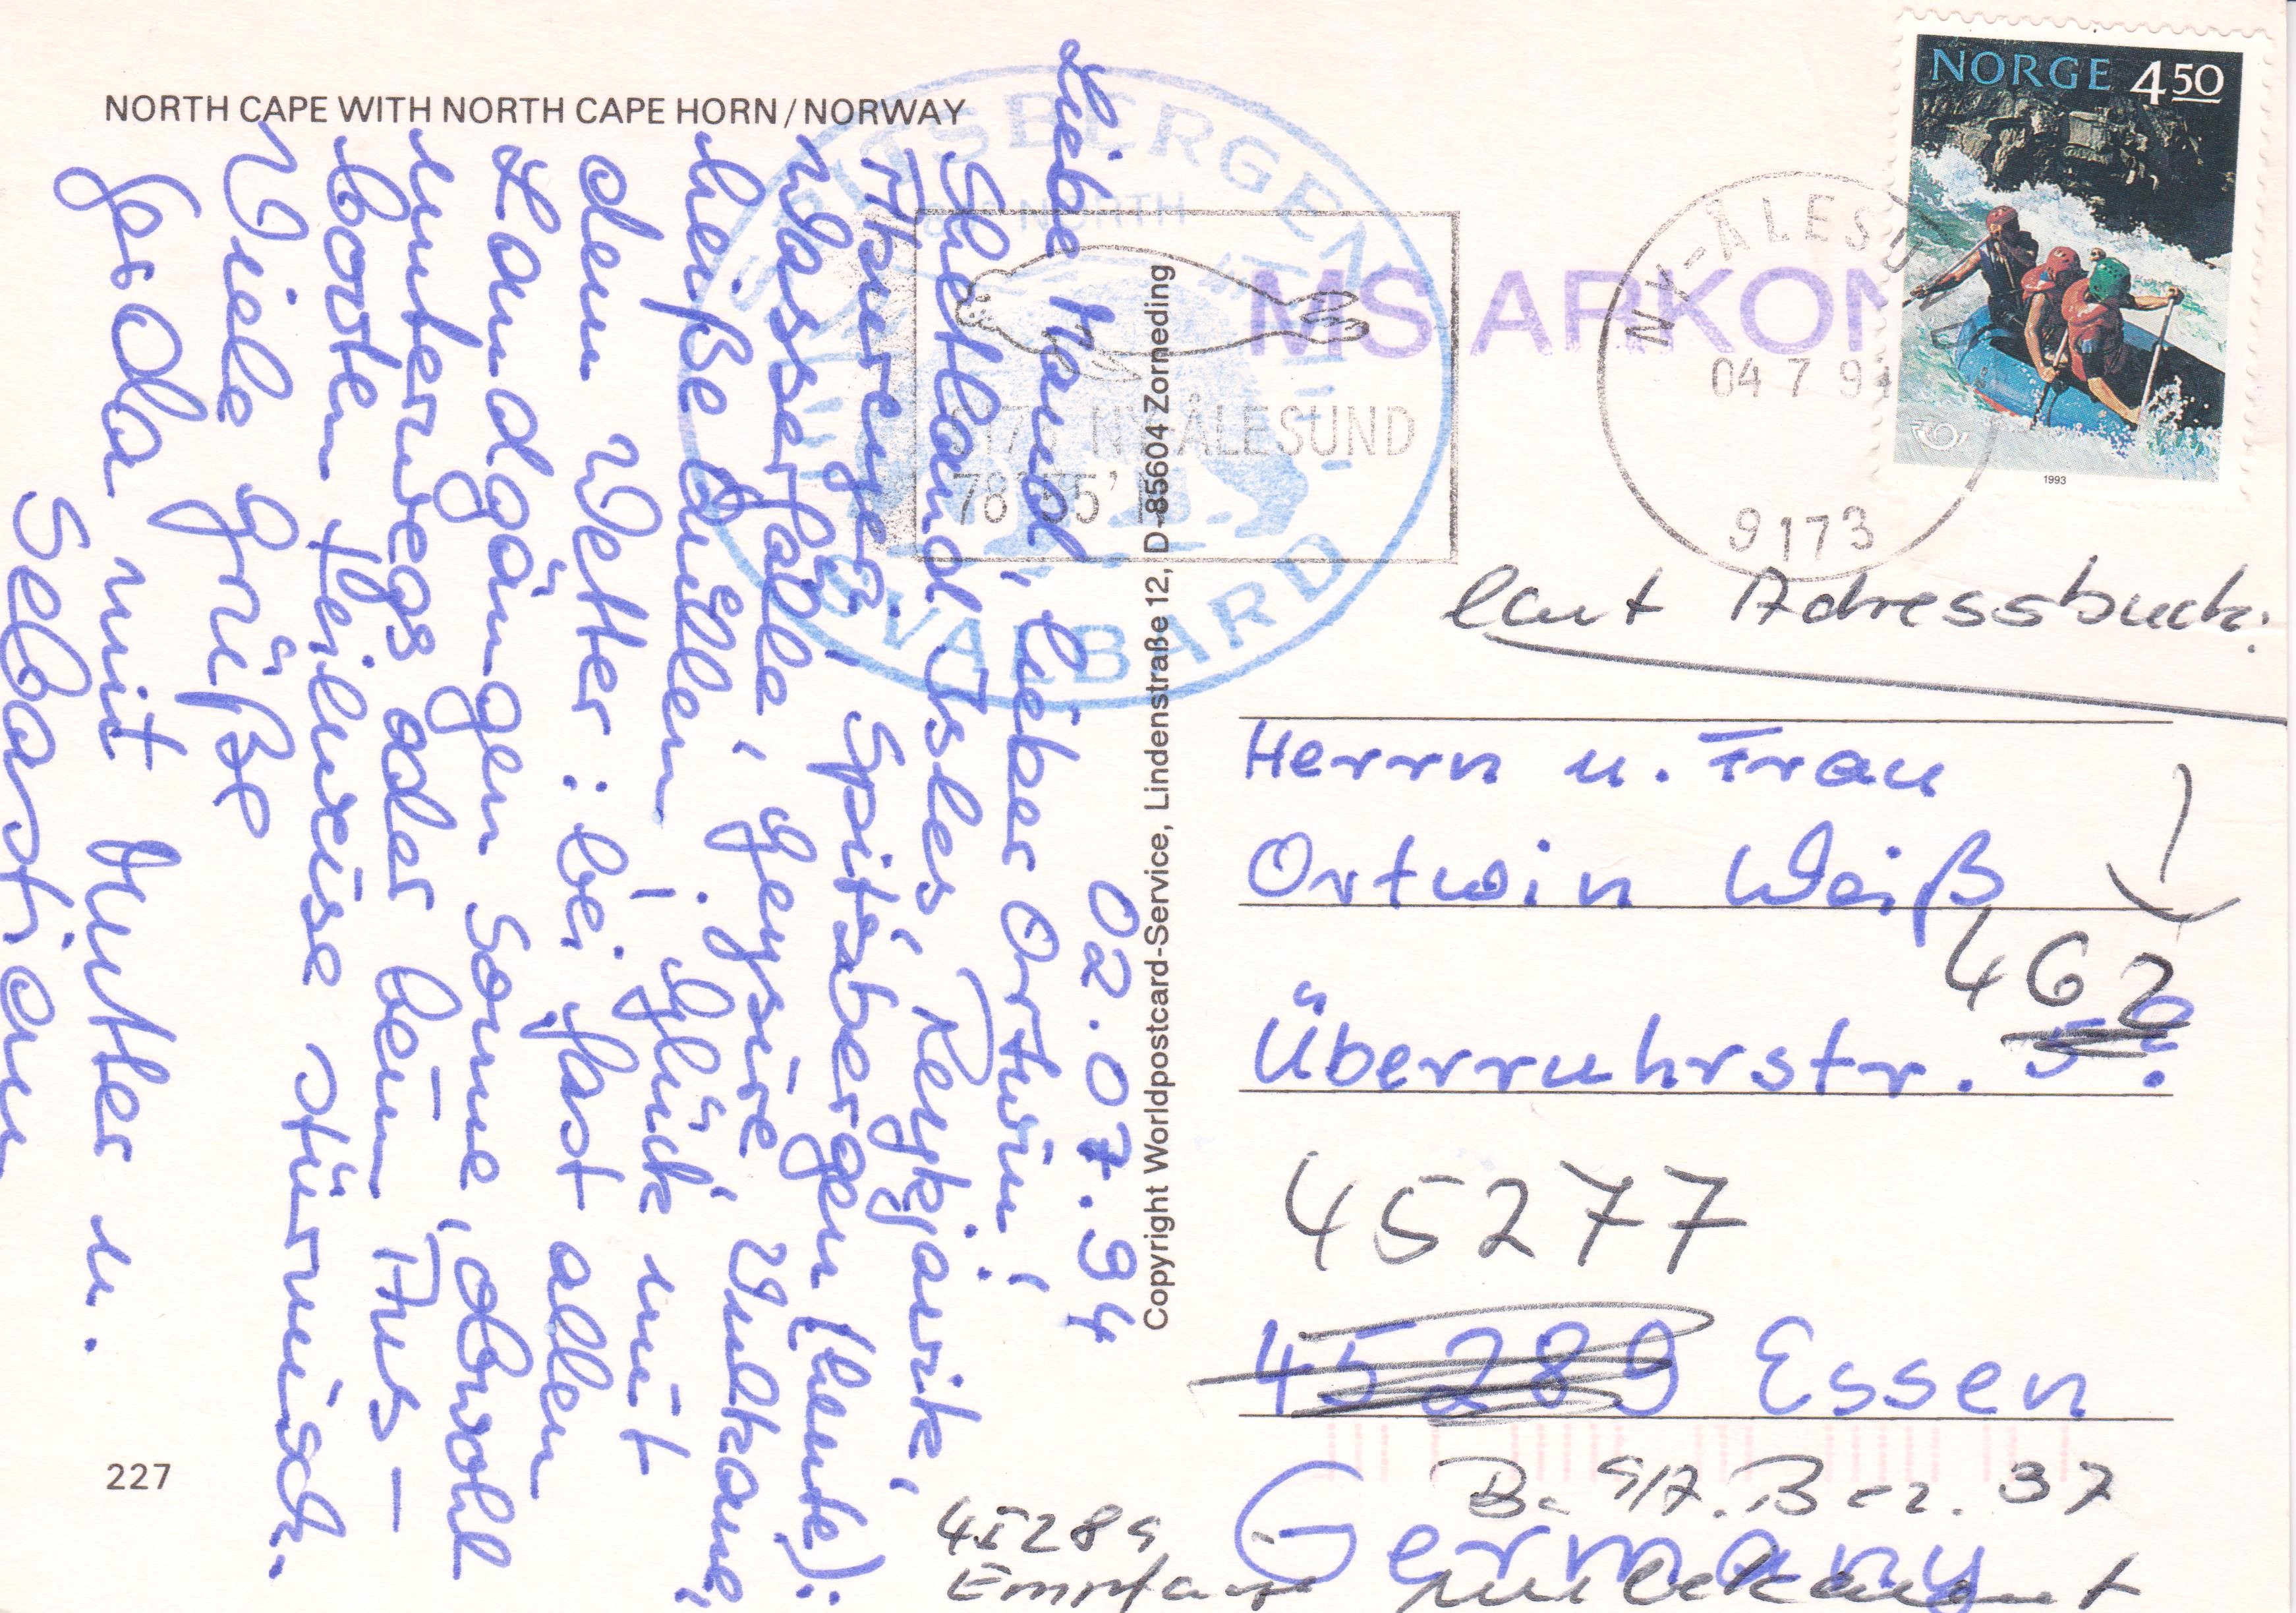 NORTH CAPE WITH NORTH CAPE HORN / NORWAY
02.07.94
Liebe, lieber Ortwin!
Shetland Isles, Reykjavik,
Spitzbergen (heute):
Wasserfälle, Geysire, Vulkane,
heiße Quellen! Glück mit
dem Wetter: bei fast allen
Landgängen Sonne, obwohl
unterwegs oder beim Aus-
booten teilweise stürmisch.
Viele Grüße
Gesola mit Mutter u.
Sebastian
227
Copyright Worldpostcard-Service, Lindenstraße 12, D-85604 Zorneding
NORGE 4 50
1993
SPITSBERGEN
NORTH
SVALBARD
MS ARKON
9173 NY-ÅLESUND
78°55'
NY-ÅLESUND
04 7 94
9173
laut Adressbuch:
Herrn u. Frau
Ortwin Weiß
462
Überruhrstr. 5?
45277
45289 Essen
Germany
B. Bez. 37
45289
unbekannt